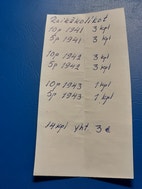 Reikäkolikot
10p 1941 3 kpl
5p 1941 3 kpl
10p 1942 3 kpl
5p 1942 3 kpl
10p 1943 1 kpl
5p 1943 1 kpl
14 kpl yht 3 €